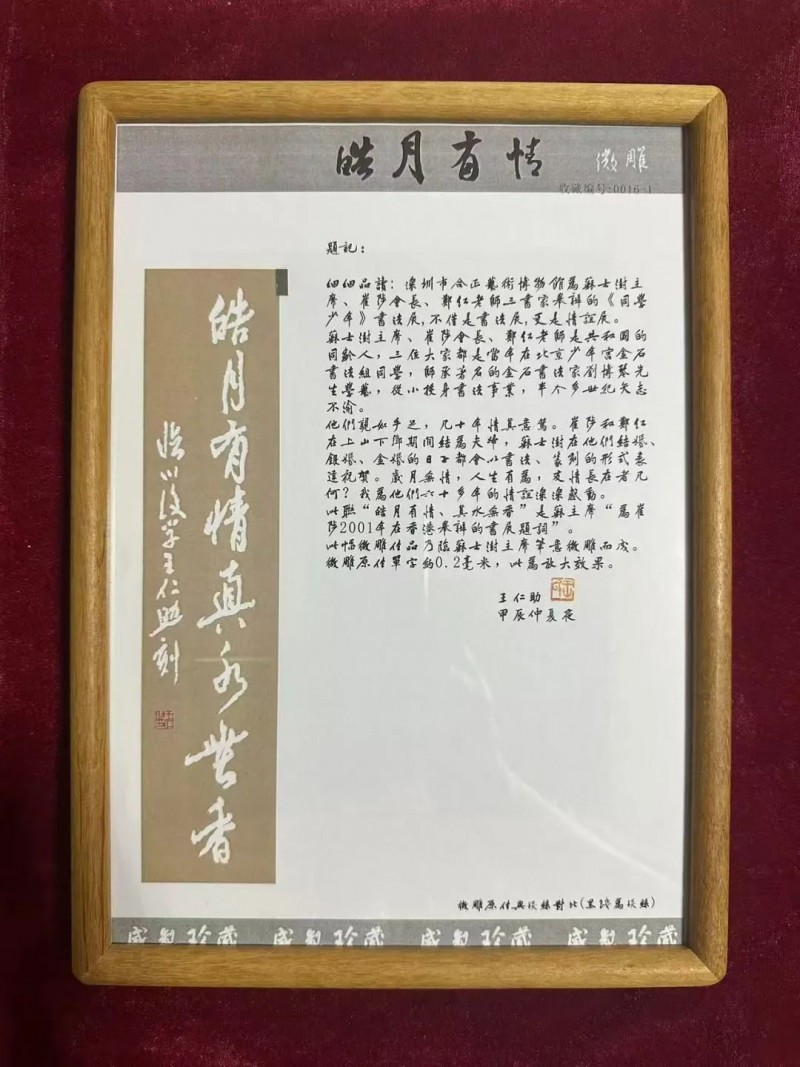 皓月有情 微雕
收藏编号:0016-1
皓月有情真水無香
临川後学王仁助刻
題記：
細細品讀：深圳市合正藝術博物館爲蘇士澍主
席、崔陟會長、鄭仁老師三書家舉辦的《同學
少年》書法展,不僅是書法展,更是情誼展。
蘇士澍主席、崔陟會長、鄭仁老師是共和國的
同齡人，三位大家都是當年在北京少年宮金石
書法組同學，師承著名的金石書法家劉博琴先
生學藝，從小投身書法事業，半个多世紀矢志
不渝。
他們親如手足，几十年情真意篤。崔陟和鄭仁
在上山下鄉期間結爲夫婦，蘇士澍在他們結婚、
銀婚、金婚的日子都會以書法、篆刻的形式表
達祝賀。歲月無情，人生有爲，友情長在者几
何？我爲他們六十多年的情誼深深感動。
此聯“皓月有情、真水無香”是蘇主席“爲崔
陟2001年在香港舉辦的書展題詞”。
此幅微雕作品乃臨蘇士澍主席筆意微雕而成。
微雕原作單字約0.2毫米，此爲放大效果。
王仁助
甲辰仲夏夜
微雕原作與頭絲對比(黑綫爲頭絲)
珍藏 珍藏 珍藏 珍藏